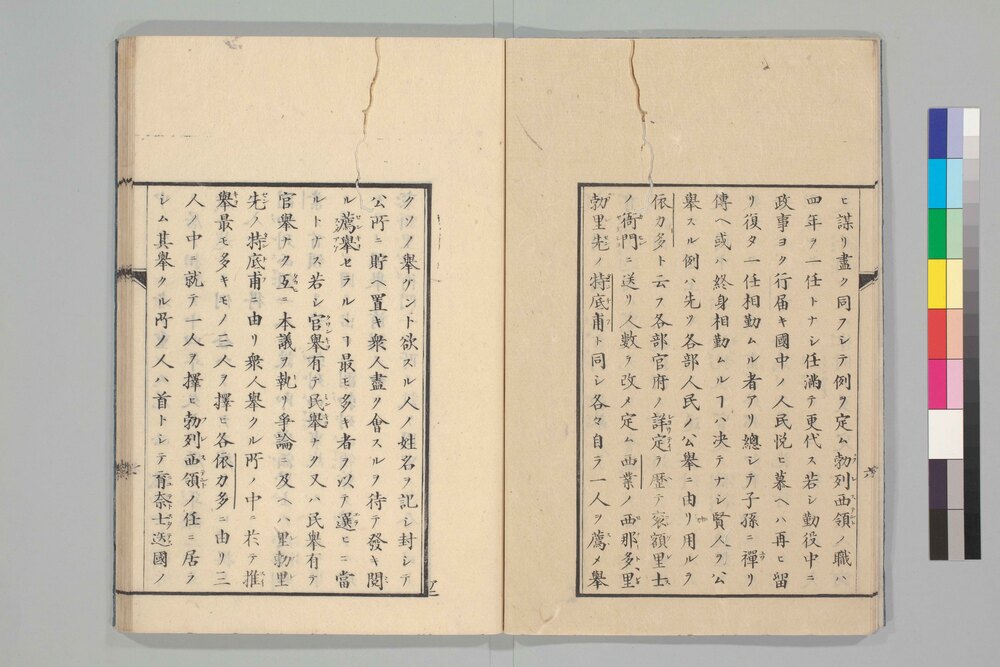 ヒ謀リ盡ク同フシテ例ヲ定ム勃列西領ノ職ハ
四年ヲ一任トナシ任滿テ更代ス若シ勤役中ニ
政事ヨク行届キ國中ノ人民悅ヒ慕ヘハ再ヒ留
リ復タ一任相勤ムル者アリ總シテ子孫ニ禪リ
傳ヘ或ハ終身相勤ムルフハ决テナシ賢人ヲ公
擧スル例ハ先ツ各部人民ノ公擧ニ由リ用ルヲ
依力多ト云フ各部官府ノ詳定ヲ歷テ袞額里士
ノ衙門ニ送リ人數ヲ改メ定ム西業ノ西那多里
勃里先ノ特底甫ト同シ各々自ラ一人ヲ薦メ擧
クソノ擧ケント欲スル人ノ姓名ヲ記シ封シテ
公所ニ貯ヘ置キ衆人盡ク會スルヲ待テ發キ閱
ル薦擧セラルヽヿ最モ多キ者ヲ以テ選ヒニ當
ルトナス若シ官擧有テ民擧ナク又ハ民擧有テ
官擧ナク互ニ本議ヲ執リ爭論ニ及ヘハ里勃里
先ノ特底甫ニ由リ衆人擧クル所ノ中ニ於テ推
擧最モ多キモノ三人ヲ擇ヒ各依力多ニ由リ三
人ノ中ニ就テ一人ヲ擇ヒ勃列西領ノ任ニ居ラ
シム其擧クル所ノ人ハ首トシテ育奈士迭國ノ